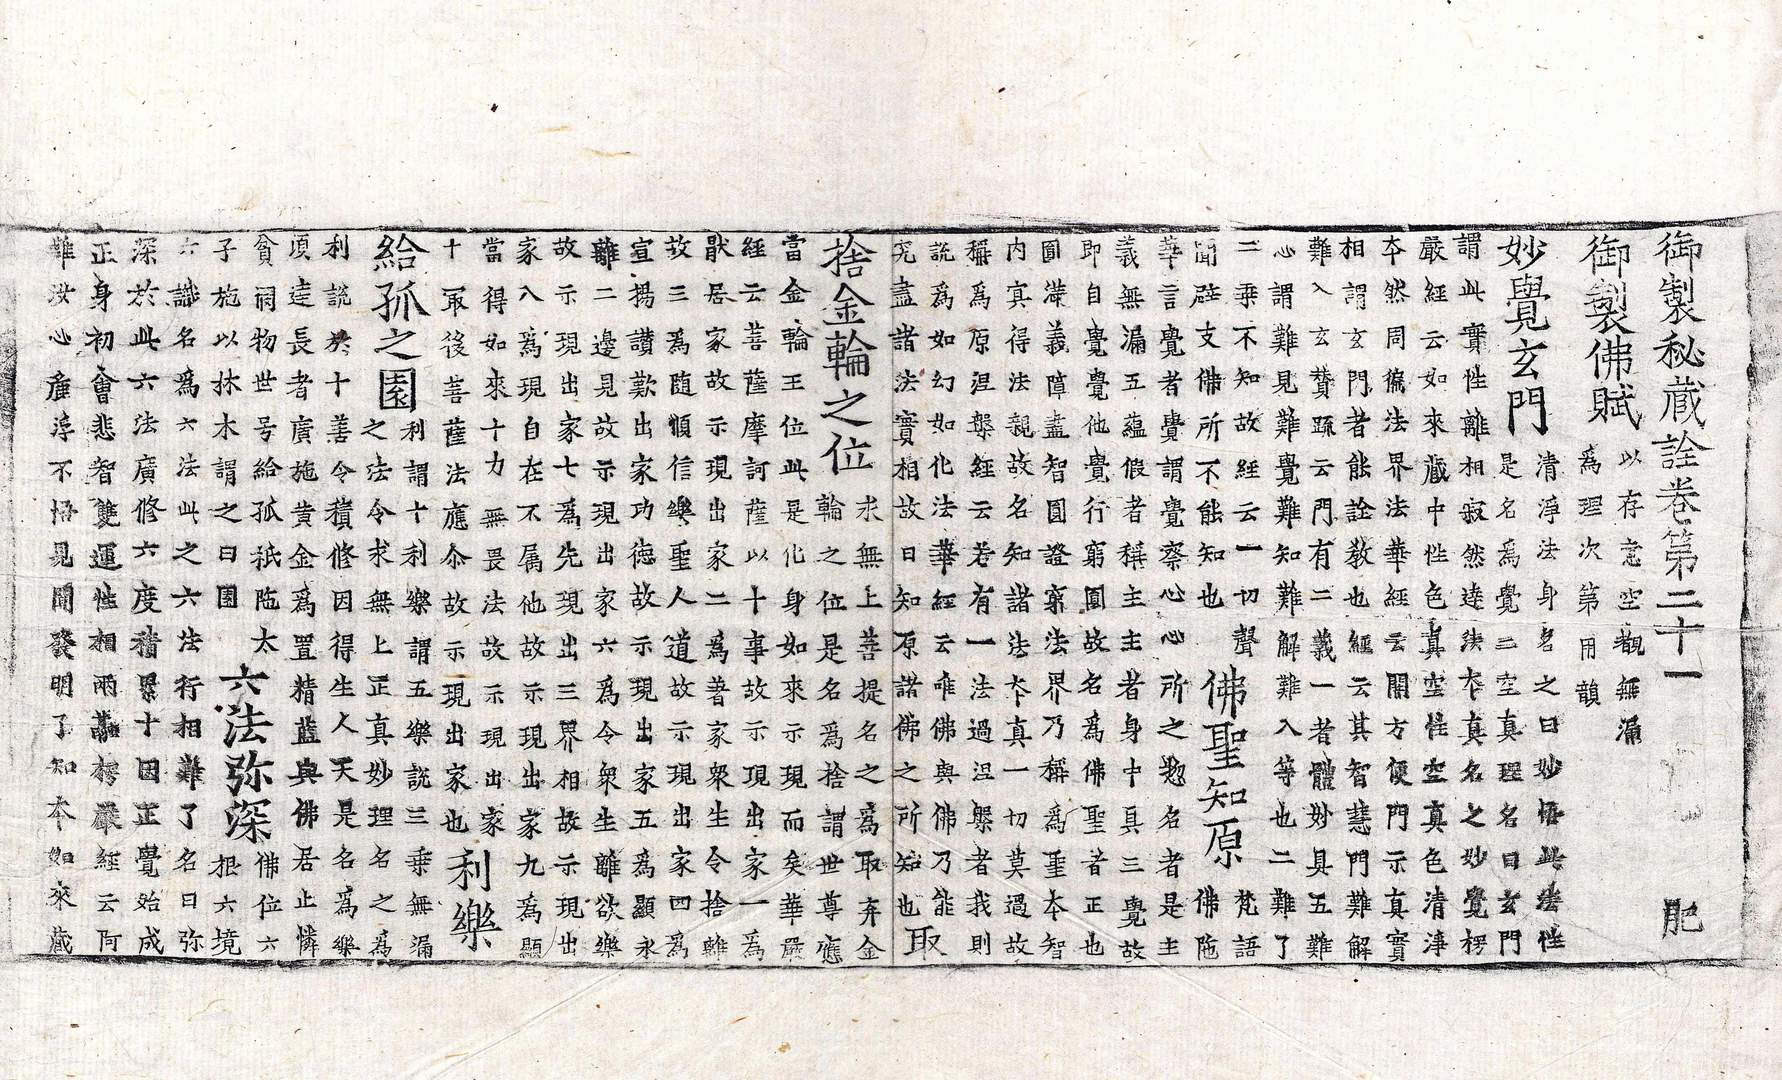 御製秘蔵詮卷第二十一　肥
御製佛賦 以存意空觀無漏
為理次第用韻
妙覺玄門 清淨法身名之曰妙悟此法性
是名為覺二空真理名曰玄門
謂此實性離相寂然達法夲真名之妙覺楞
嚴經云如來蔵中性色真空性空真色清淨
夲然同徧法界法華經云開方便門示真實
相謂玄門者能詮教也經云其智慧門難解
難入玄賛疏云門有二義一者體妙具五難
心謂難見難覺難知難解難入等也二難了
二乗不知故經云一切聲
聞辟支佛所不能知也 佛聖知原 梵語
佛陁
華言覺者覺謂覺察心心所之惣名者是主
義無漏五蘊假者稱主主者身中具三覺故
即自覺覺他覺行窮圓故名為佛聖者正也
圓滿義障盡智圓證窮法界乃稱為聖夲智
内冥得法親故名知諸法夲真一切莫過故
稱為原涅槃經云若有一法過涅槃者我則
說為如幻如化法華經云唯佛與佛乃能
究盡諸法實相故曰知原諸佛之所知也 取
捨金輪之位 求無上菩提名之為取弃金
輪之位是名為捨謂世尊應
當金輪王位此是化身如來示現而矣華嚴
經云菩薩摩訶薩以十事故示現出家一為
猒居家故示現出家二為著家衆生令捨離
故三為随順信樂聖人道故示現出家四為
宣揚讃歎出家功徳故示現出家五為顯永
離二邊見故示現出家六為令衆生離欲樂
故示現出家七為先現出三界相故示現出
家八為現自在不属他故示現出家九為顯
當得如來十力無畏法故示現出家
十冣後菩薩法應尒故示現出家也 利樂
給孤之園 利謂十利樂謂五樂說三乗無漏
之法令求無上正真妙理名之為
利說於十善令積修因得生人天是名為樂
須達長者廣施黄金為置精藍與佛居止憐
貧祠物世号給孤祇陁太
子施以林木謂之曰園 六法弥深 佛位六
根六境
六識名為六法此之六法行相難了名曰弥
深於此六法廣修六度積累十因正覺始成
正身初會悲智雙運性相兩融楞嚴經云阿
難汝心虛浮不悟見聞發明了知夲如來蔵